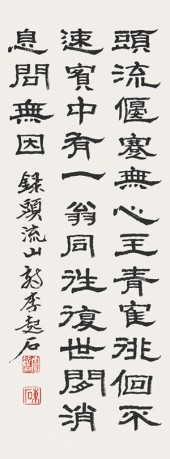 頭流偃蹇無心主青隺徘徊不
速賓中有一翁同往復世間消
息問無因 録頭流山詩李起石